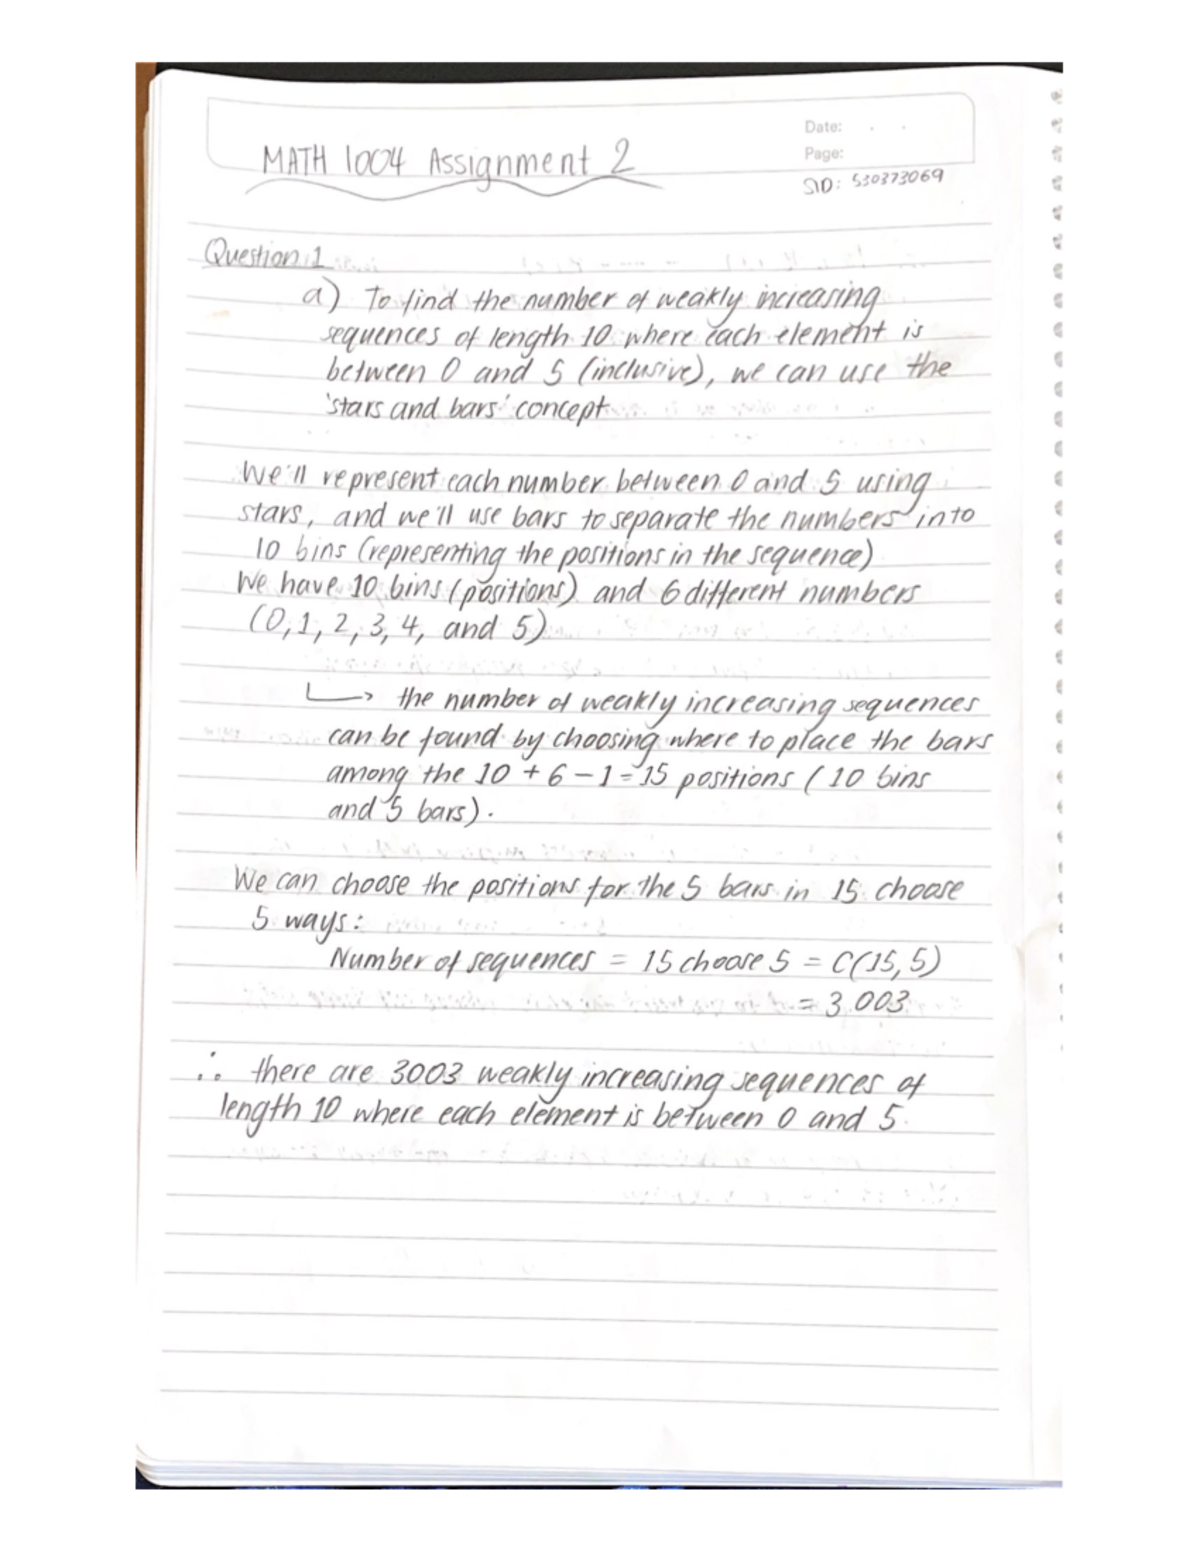 Date: . .
Page:
MATH 1004 Assignment 2
SID: 530373069
Question 1
a) To find the number of weakly increasing
sequences of length 10 where each element is
between 0 and 5 (inclusive), we can use the
'stars and bars' concept
We'll represent each number between 0 and 5 using
stars, and we'll use bars to separate the numbers into
10 bins (representing the positions in the sequence)
We have 10 bins (positions) and 6 different numbers
(0,1, 2, 3, 4, and 5)
↳ the number of weakly increasing sequences
can be found by choosing where to place the bars
among the 10 + 6 - 1 = 15 positions (10 bins
and 5 bars).
We can choose the positions for the 5 bars in 15 choose
5 ways:
Number of sequences = 15 choose 5 = C(15, 5)
= 3 003
∴ there are 3003 weakly increasing sequences of
length 10 where each element is between 0 and 5.